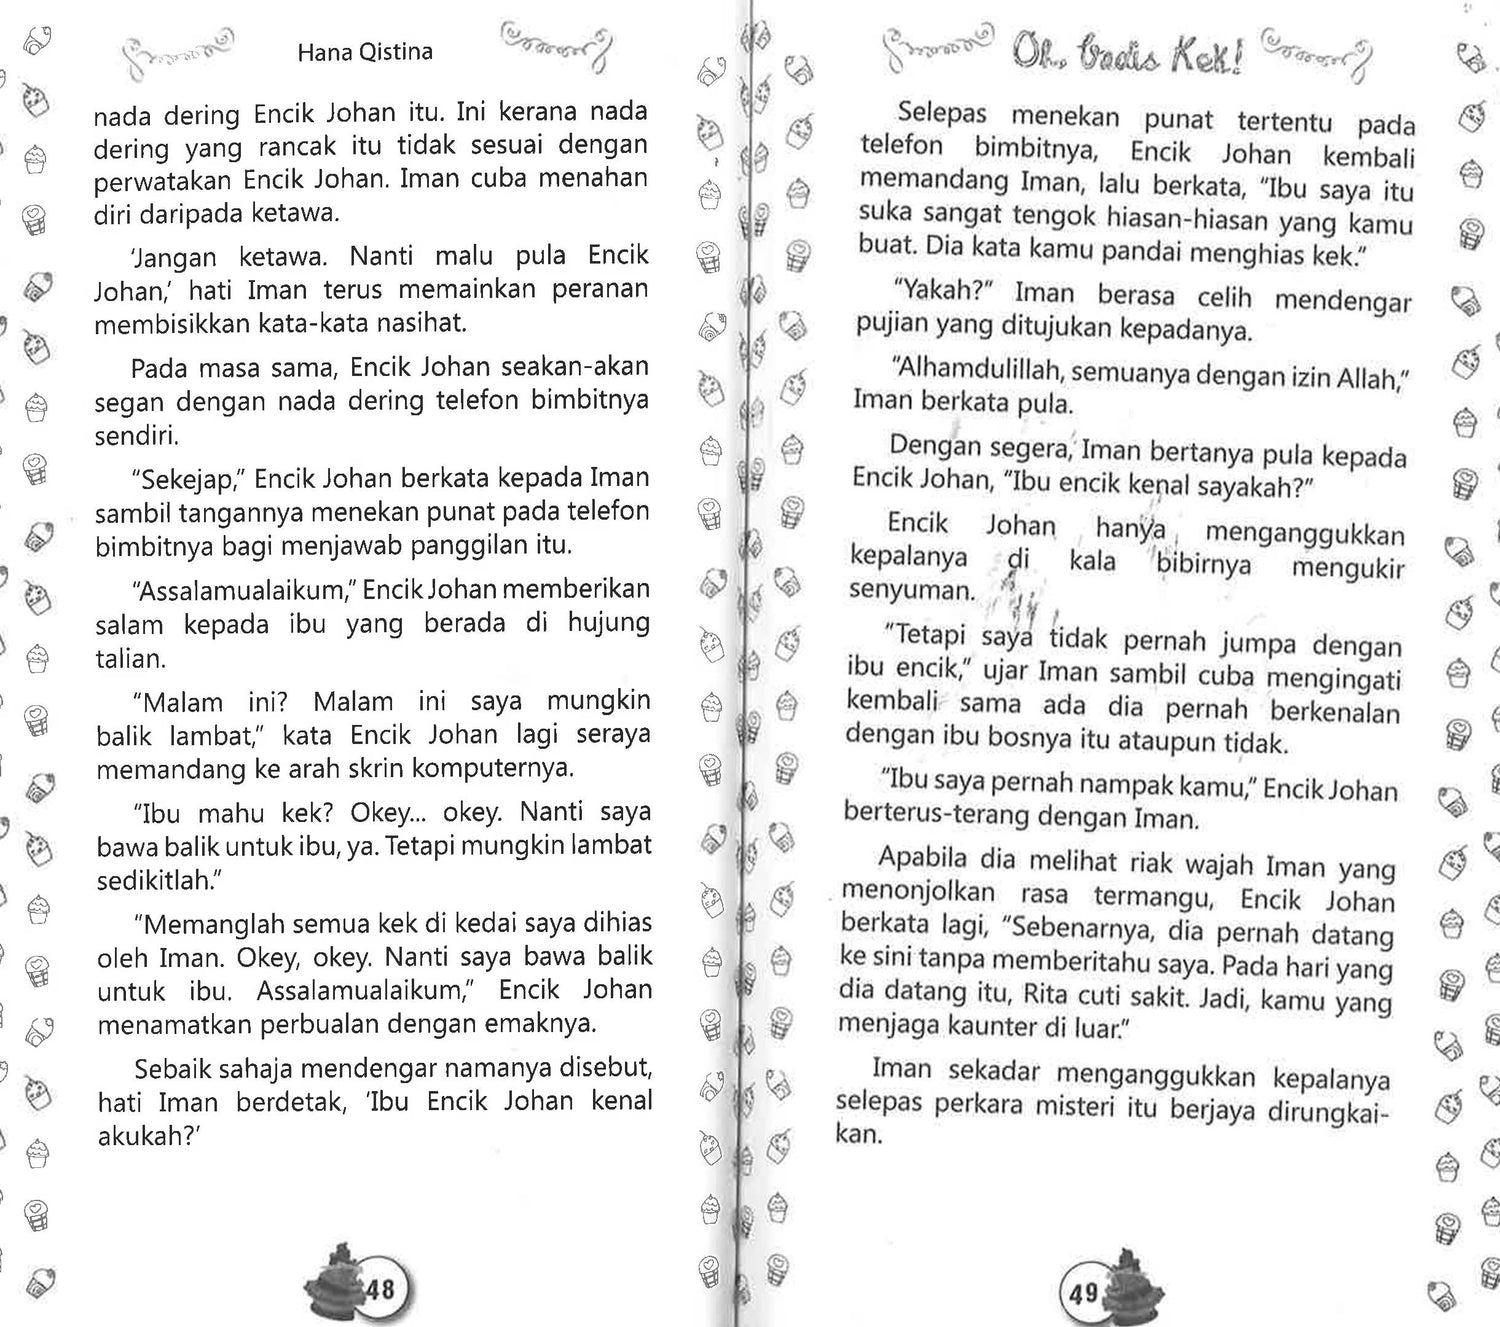 Hana Qistina
nada dering Encik Johan itu. Ini kerana nada
dering yang rancak itu tidak sesuai dengan
perwatakan Encik Johan. Iman cuba menahan
diri daripada ketawa.
‘Jangan ketawa. Nanti malu pula Encik
Johan,’ hati Iman terus memainkan peranan
membisikkan kata-kata nasihat.
Pada masa sama, Encik Johan seakan-akan
segan dengan nada dering telefon bimbitnya
sendiri.
“Sekejap,” Encik Johan berkata kepada Iman
sambil tangannya menekan punat pada telefon
bimbitnya bagi menjawab panggilan itu.
“Assalamualaikum,” Encik Johan memberikan
salam kepada ibu yang berada di hujung
talian.
“Malam ini? Malam ini saya mungkin
balik lambat,” kata Encik Johan lagi seraya
memandang ke arah skrin komputernya.
“Ibu mahu kek? Okey... okey. Nanti saya
bawa balik untuk ibu, ya. Tetapi mungkin lambat
sedikitlah.”
“Memanglah semua kek di kedai saya dihias
oleh Iman. Okey, okey. Nanti saya bawa balik
untuk ibu. Assalamualaikum,” Encik Johan
menamatkan perbualan dengan emaknya.
Sebaik sahaja mendengar namanya disebut,
hati Iman berdetak, ‘Ibu Encik Johan kenal
akukah?’
48
Oh, Gadis Kek!
Selepas menekan punat tertentu pada
telefon bimbitnya, Encik Johan kembali
memandang Iman, lalu berkata, “Ibu saya itu
suka sangat tengok hiasan-hiasan yang kamu
buat. Dia kata kamu pandai menghias kek.”
“Yakah?” Iman berasa celih mendengar
pujian yang ditujukan kepadanya.
“Alhamdulillah, semuanya dengan izin Allah,”
Iman berkata pula.
Dengan segera, Iman bertanya pula kepada
Encik Johan, “Ibu encik kenal sayakah?”
Encik Johan hanya menganggukkan
kepalanya di kala bibirnya mengukir
senyuman.
“Tetapi saya tidak pernah jumpa dengan
ibu encik,” ujar Iman sambil cuba mengingati
kembali sama ada dia pernah berkenalan
dengan ibu bosnya itu ataupun tidak.
“Ibu saya pernah nampak kamu,” Encik Johan
berterus-terang dengan Iman.
Apabila dia melihat riak wajah Iman yang
menonjolkan rasa termangu, Encik Johan
berkata lagi, “Sebenarnya, dia pernah datang
ke sini tanpa memberitahu saya. Pada hari yang
dia datang itu, Rita cuti sakit. Jadi, kamu yang
menjaga kaunter di luar.”
Iman sekadar menganggukkan kepalanya
selepas perkara misteri itu berjaya dirungkai-
kan.
49